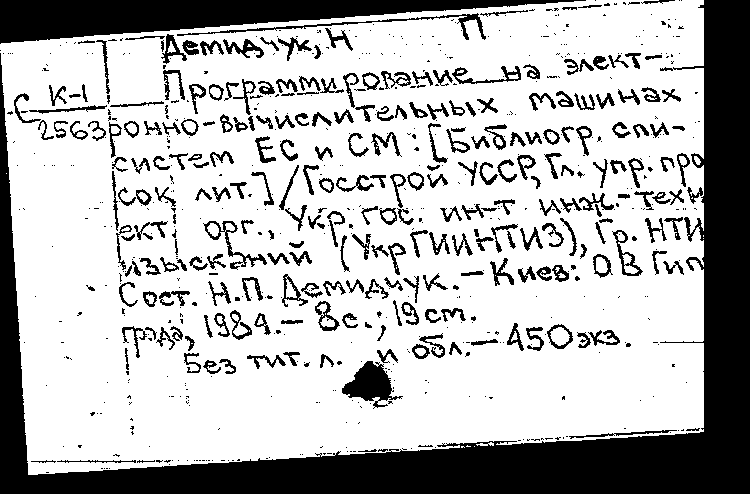 Демидчук, Н П
Программирование на элект-
С К-1
2563
ронно-вычислительных машинах
систем ЕС и СМ: [Библиогр. спи-
сок лит.] / Госстрой УССР, Гл. упр. про
ект. орг., Укр. гос. ин-т инж.-техн
изысканий (УкрГИИНТИЗ), Гр. НТИ
Сост. Н.П. Демидчук. — Киев: ОВ Гип
града, 1984. — 8 с.; 19 см.
Без тит. л. и обл. — 450 экз.